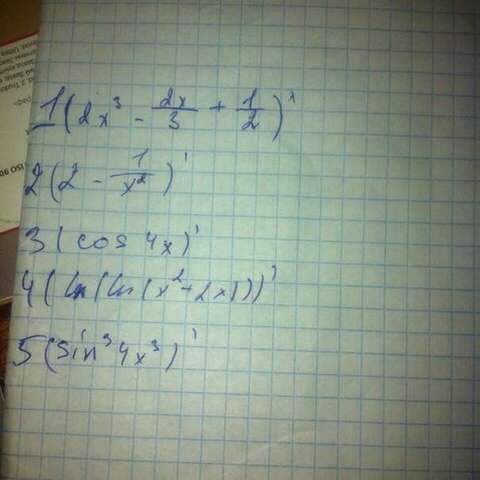 1 (2x³ - 2x/3 + 1/2)'
2 (2 - 1/x²)'
3 (cos 4x)'
4 (ln(ln(x²+2x)))'
5 (sin³ 4x³)'
ISO 90